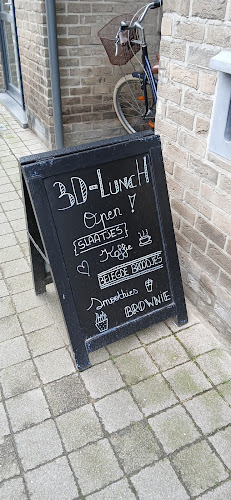 3D-LUNCH
Open!
SLAATJES
Koffie
BELEGDE BROODJES
Smoothies
BROWNIE